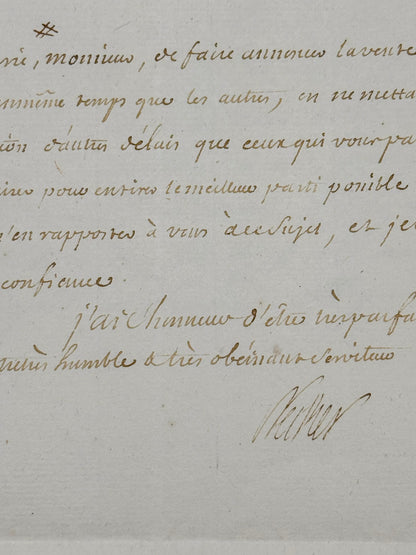 #
, monsieur, de faire annoncer la vente
temps que les autres, en ne metta
d'autres délais que ceux qui vous pa
pour en tirer le meilleur parti possible
m'en rapporter à vous à ce sujet, et je
confience.
j'ai l'honneur d'être très parfa
très humble & très obéissant serviteur
Necker